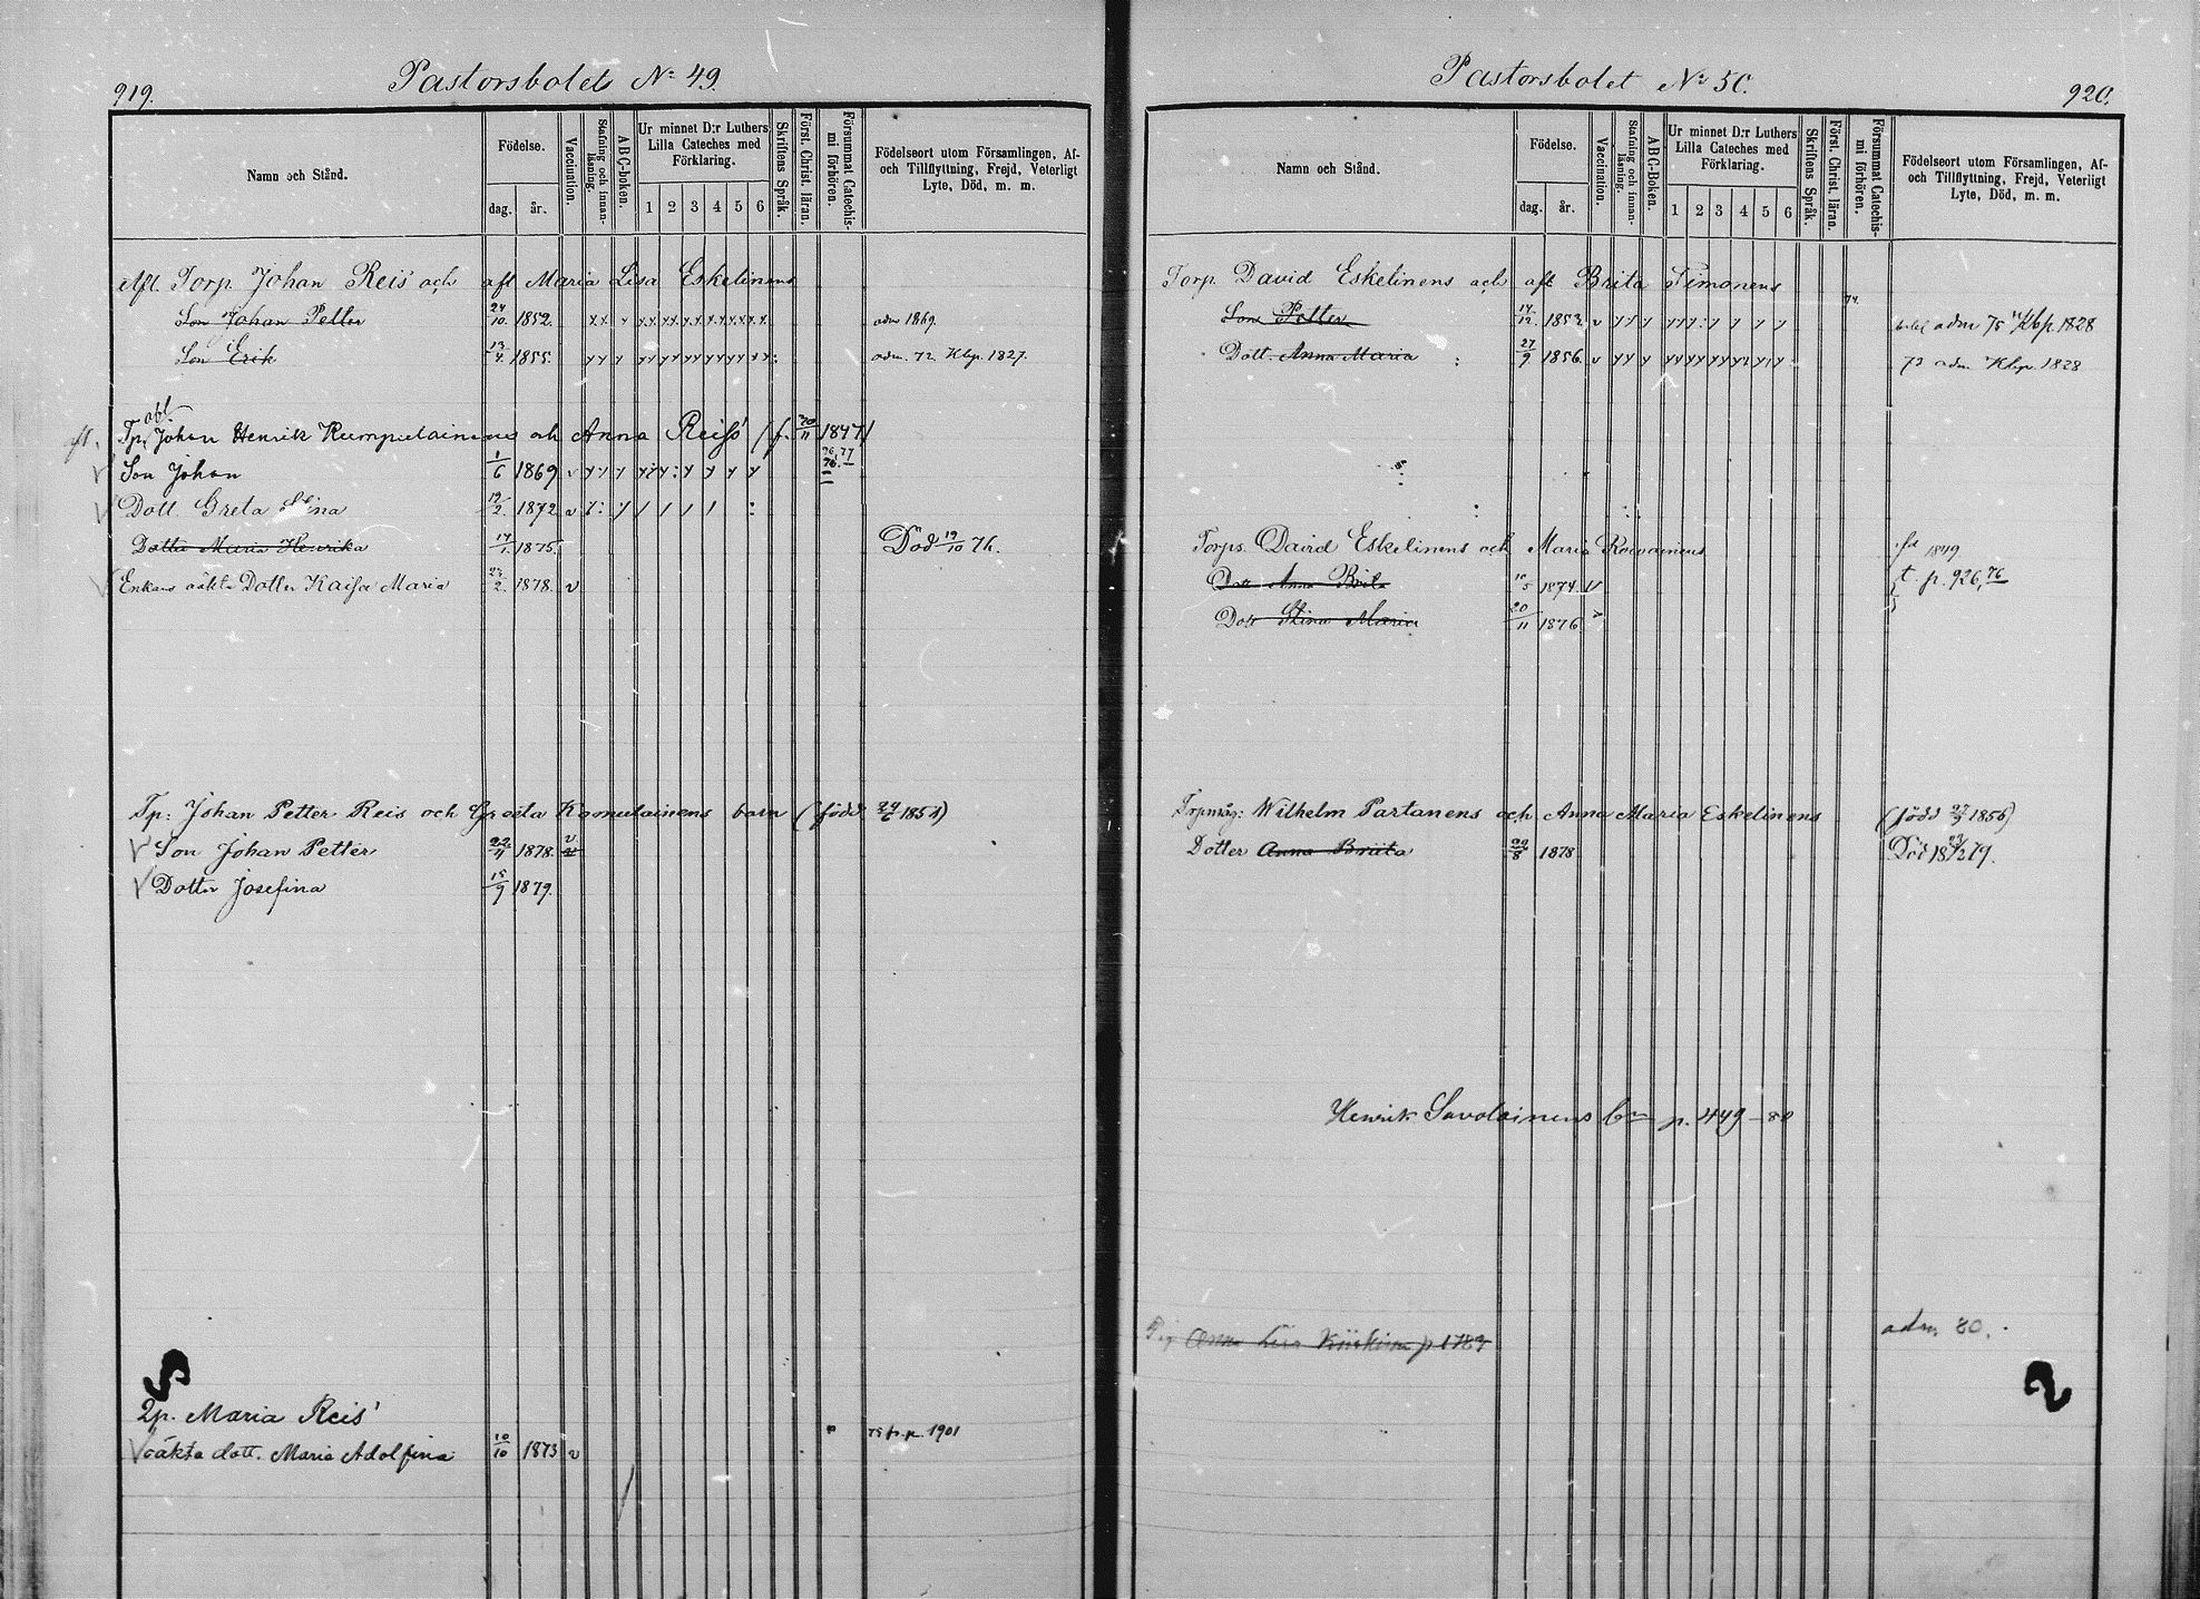 919.
Pastorsbolet No 49.
Namn och Stånd.
Födelse.
dag. år.
Vaccination.
Stafning och innanläsning.
ABC-boken.
Ur minnet D:r Luthers Lilla Cateches med Förklaring.
1 2 3 4 5 6
Skriftens Språk.
Först. Christ. läran.
Försummat Catechismi förhören.
Födelseort utom Församlingen, Af- och Tillflyttning, Frejd, Veterligt Lyte, Död, m. m.
Afl. Torp. Johan Reis och afl Maria Lisa Eskelinens
Son Johan Petter 24/10. 1852. adm 1869.
Son Erik 13/4. 1855. adm. 72 Kbp. 1827.
afl. Tp. Johan Henrik Rumpulainens och Anna Reiss' (f. 30/11 1847)
Son Johan 1/6 1869 v
Dott. Greta Stina 19/2. 1872 v
Dotter Maria Henrika 14/1. 1875. Död 19/10 76.
Enkans oäkta Dotter Kaisa Maria 23/2. 1878. v
Tp: Johan Petter Reis och Greeta Komulainens barn (född 24/6 1854)
Son Johan Petter 22/11 1878. v
Dotter Josefina 15/9 1879.
Maria Reis'
oäkta dott. Maria Adolfina 10/10 1873 v p. 1901
920.
Pastorsbolet No 50.
Namn och Stånd.
Födelse.
dag. år.
Vaccination.
Stafning och innanläsning.
ABC-Boken.
Ur minnet D:r Luthers Lilla Cateches med Förklaring.
1 2 3 4 5 6
Skriftens Språk.
Först. Christ. läran.
Försummat Catechismi förhören.
Födelseort utom Församlingen, Af- och Tillflyttning, Frejd, Veterligt Lyte, Död, m. m.
Torp. David Eskelinens och afl Brita Timonens
Son Petter 14/12. 1853. v 74. adm 75 Kbp. 1828
Dott. Anna Maria 27/9 1856. v 73 adm Kbp. 1828
Torps. David Eskelinens och Maria Rovainens fd 1849
Dott Anna Brita 10/5 1874. v t. p. 926, 76
Dott Stina Maria 20/11 1876 v
Torpmåg: Wilhelm Partanens och Anna Maria Eskelinens (född 27/9 1856)
Dotter Anna Briita 22/8 1878 Död 18 23/2 79.
Henrik Savolainens p. 449 - 80
Anna Lisa p 1784 adm 80.